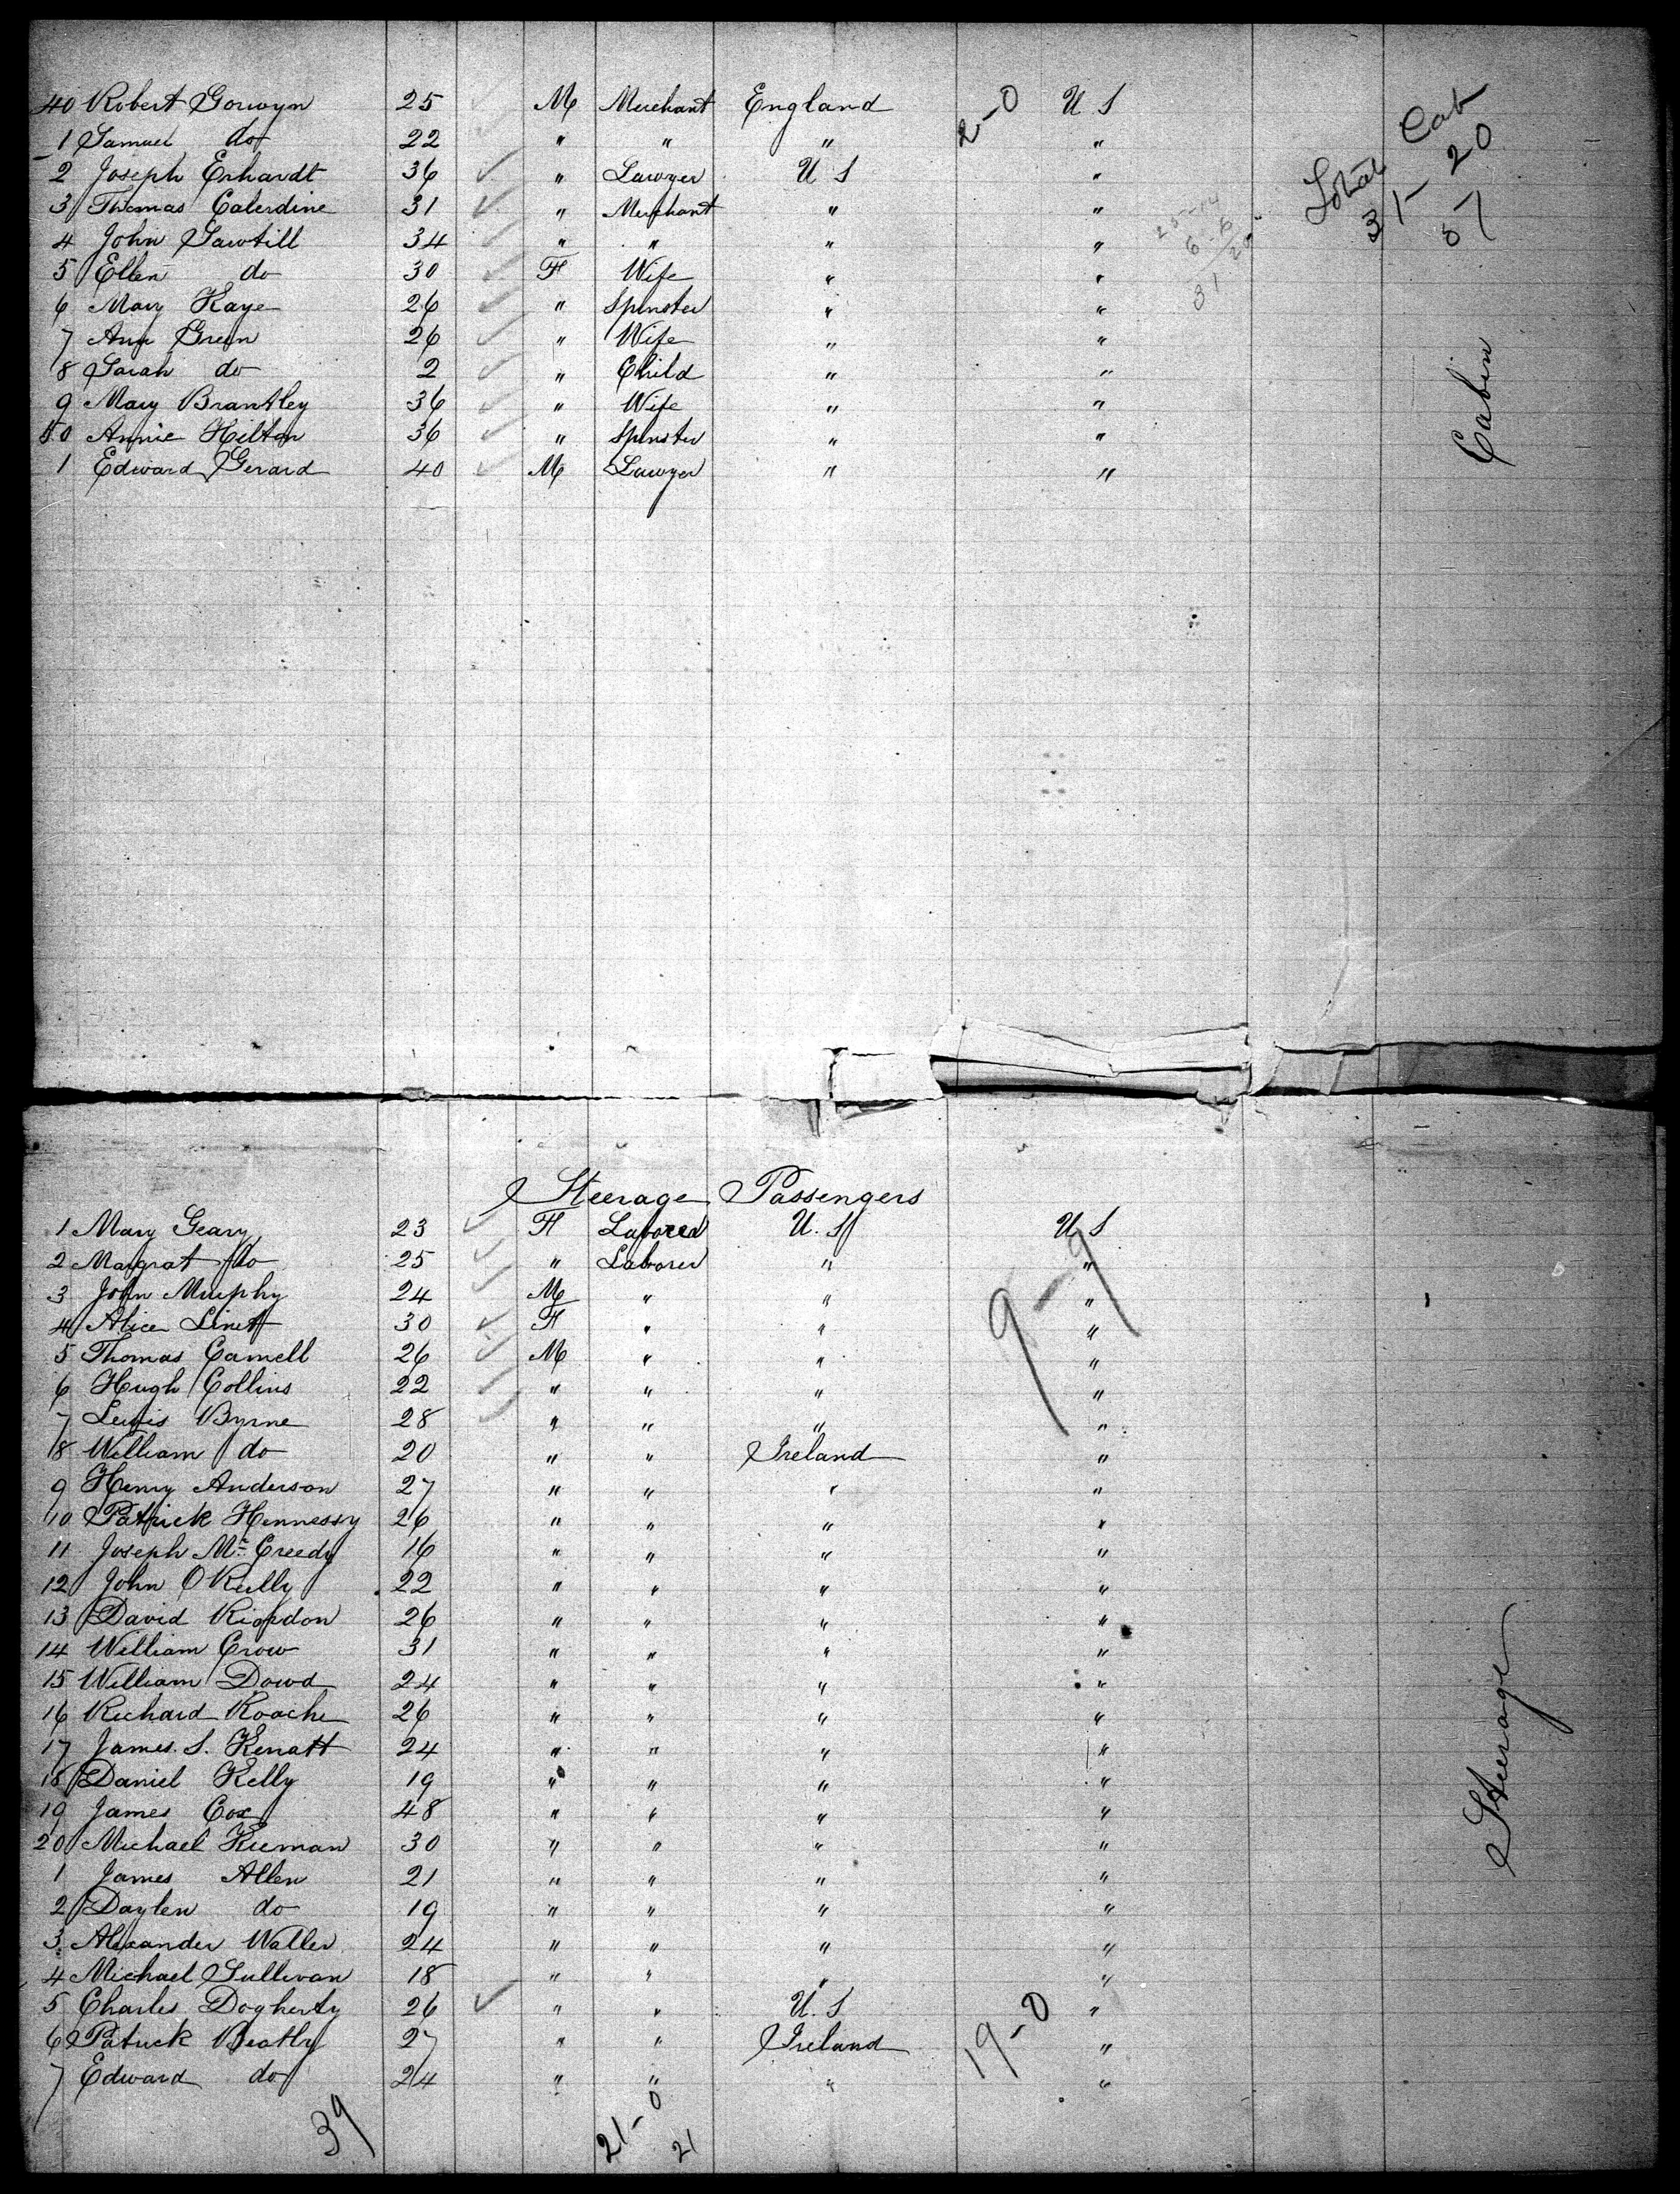 40 Robert Gorwyn 25 M Merchant England 2-0 U S
1 Samuel do 22 " " " "
2 Joseph Erhardt 36 " Lawyer U S "
3 Thomas Calerdine 31 " Merchant " "
4 John Sawtill 34 " " " "
5 Ellen do 30 F Wife " "
6 Mary Kaye 26 " Spinster " "
7 Ann Green 26 " Wife " "
8 Sarah do 2 " Child " "
9 Mary Brantley 36 " Wife " "
50 Annie Hilton 36 " Spinster " "
1 Edward Gerard 40 M Lawyer " "
Total Cab
31- 20
51
25-14
6-6
31/20
Cabin
Steerage Passengers
1 Mary Geary 23 F Laborer U.S U S
2 Margrat do 25 " Laborer " "
3 John Murphy 24 M " " "
4 Alice Linett 30 F " " "
5 Thomas Camell 26 M " " "
6 Hugh Collins 22 " " " "
7 Lewis Byrne 28 " " " "
9-9
8 William do 20 " " Ireland "
9 Henry Anderson 27 " " " "
10 Patrick Hennessy 26 " " " "
11 Joseph Mc Creedy 16 " " " "
12 John O'Kelly 22 " " " "
13 David Riordon 26 " " " "
14 William Crow 31 " " " "
15 William Dowd 24 " " " "
16 Richard Roache 26 " " " "
17 James S. Kenatt 24 " " " "
18 Daniel Kelly 19 " " " "
19 James Cox 48 " " " "
20 Michael Kieman 30 " " " "
1 James Allen 21 " " " "
2 Daylen do 19 " " " "
3 Alexander Waller 24 " " " "
4 Michael Sullivan 18 " " " "
5 Charles Dogherty 26 " " U.S "
6 Patrick Beatty 27 " " Ireland 19-0 "
7 Edward do 24 " " " "
Steerage
39 21-0
21